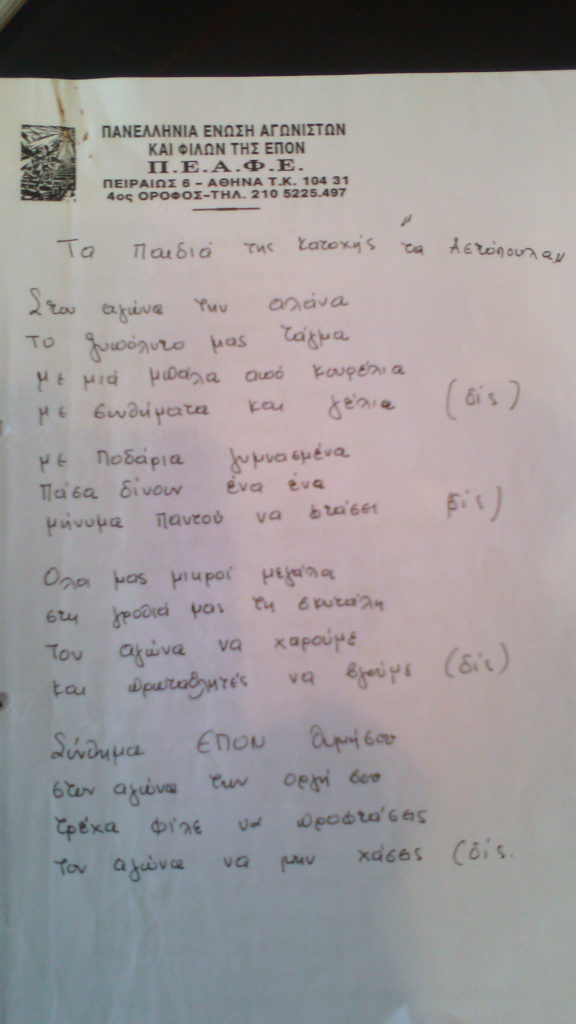 ΠΑΝΕΛΛΗΝΙΑ ΕΝΩΣΗ ΑΓΩΝΙΣΤΩΝ
ΚΑΙ ΦΙΛΩΝ ΤΗΣ ΕΠΟΝ
Π.Ε.Α.Φ.Ε.
ΠΕΙΡΑΙΩΣ 6 - ΑΘΗΝΑ Τ.Κ. 104 31
4ος ΟΡΟΦΟΣ-ΤΗΛ. 210 5225.497
Τα Παιδιά της κατοχής "τα Αετόπουλα"
Στον αγώνα την αλάνα
το ξυπόλυτο μας τάγμα
με μιά μπάλα από κουρέλια
με συνθήματα και γέλια (δίς)
με ποδάρια γυμνασμένα
πάσα δίνουν ένα ένα
μήνυμα παντού να φτάσει δίς)
Όλα μας μικροί μεγάλα
στη γροθιά μας τη σκυτάλη
τον αγώνα να χαρούμε
και πρωταθλητές να βγούμε (δίς)
Σύνθημα ΕΠΟΝ θυμήσου
στον αγώνα την οργή σου
τρέχα φίλε να προφτάσεις
τον αγώνα να μην χάσεις (δίς.